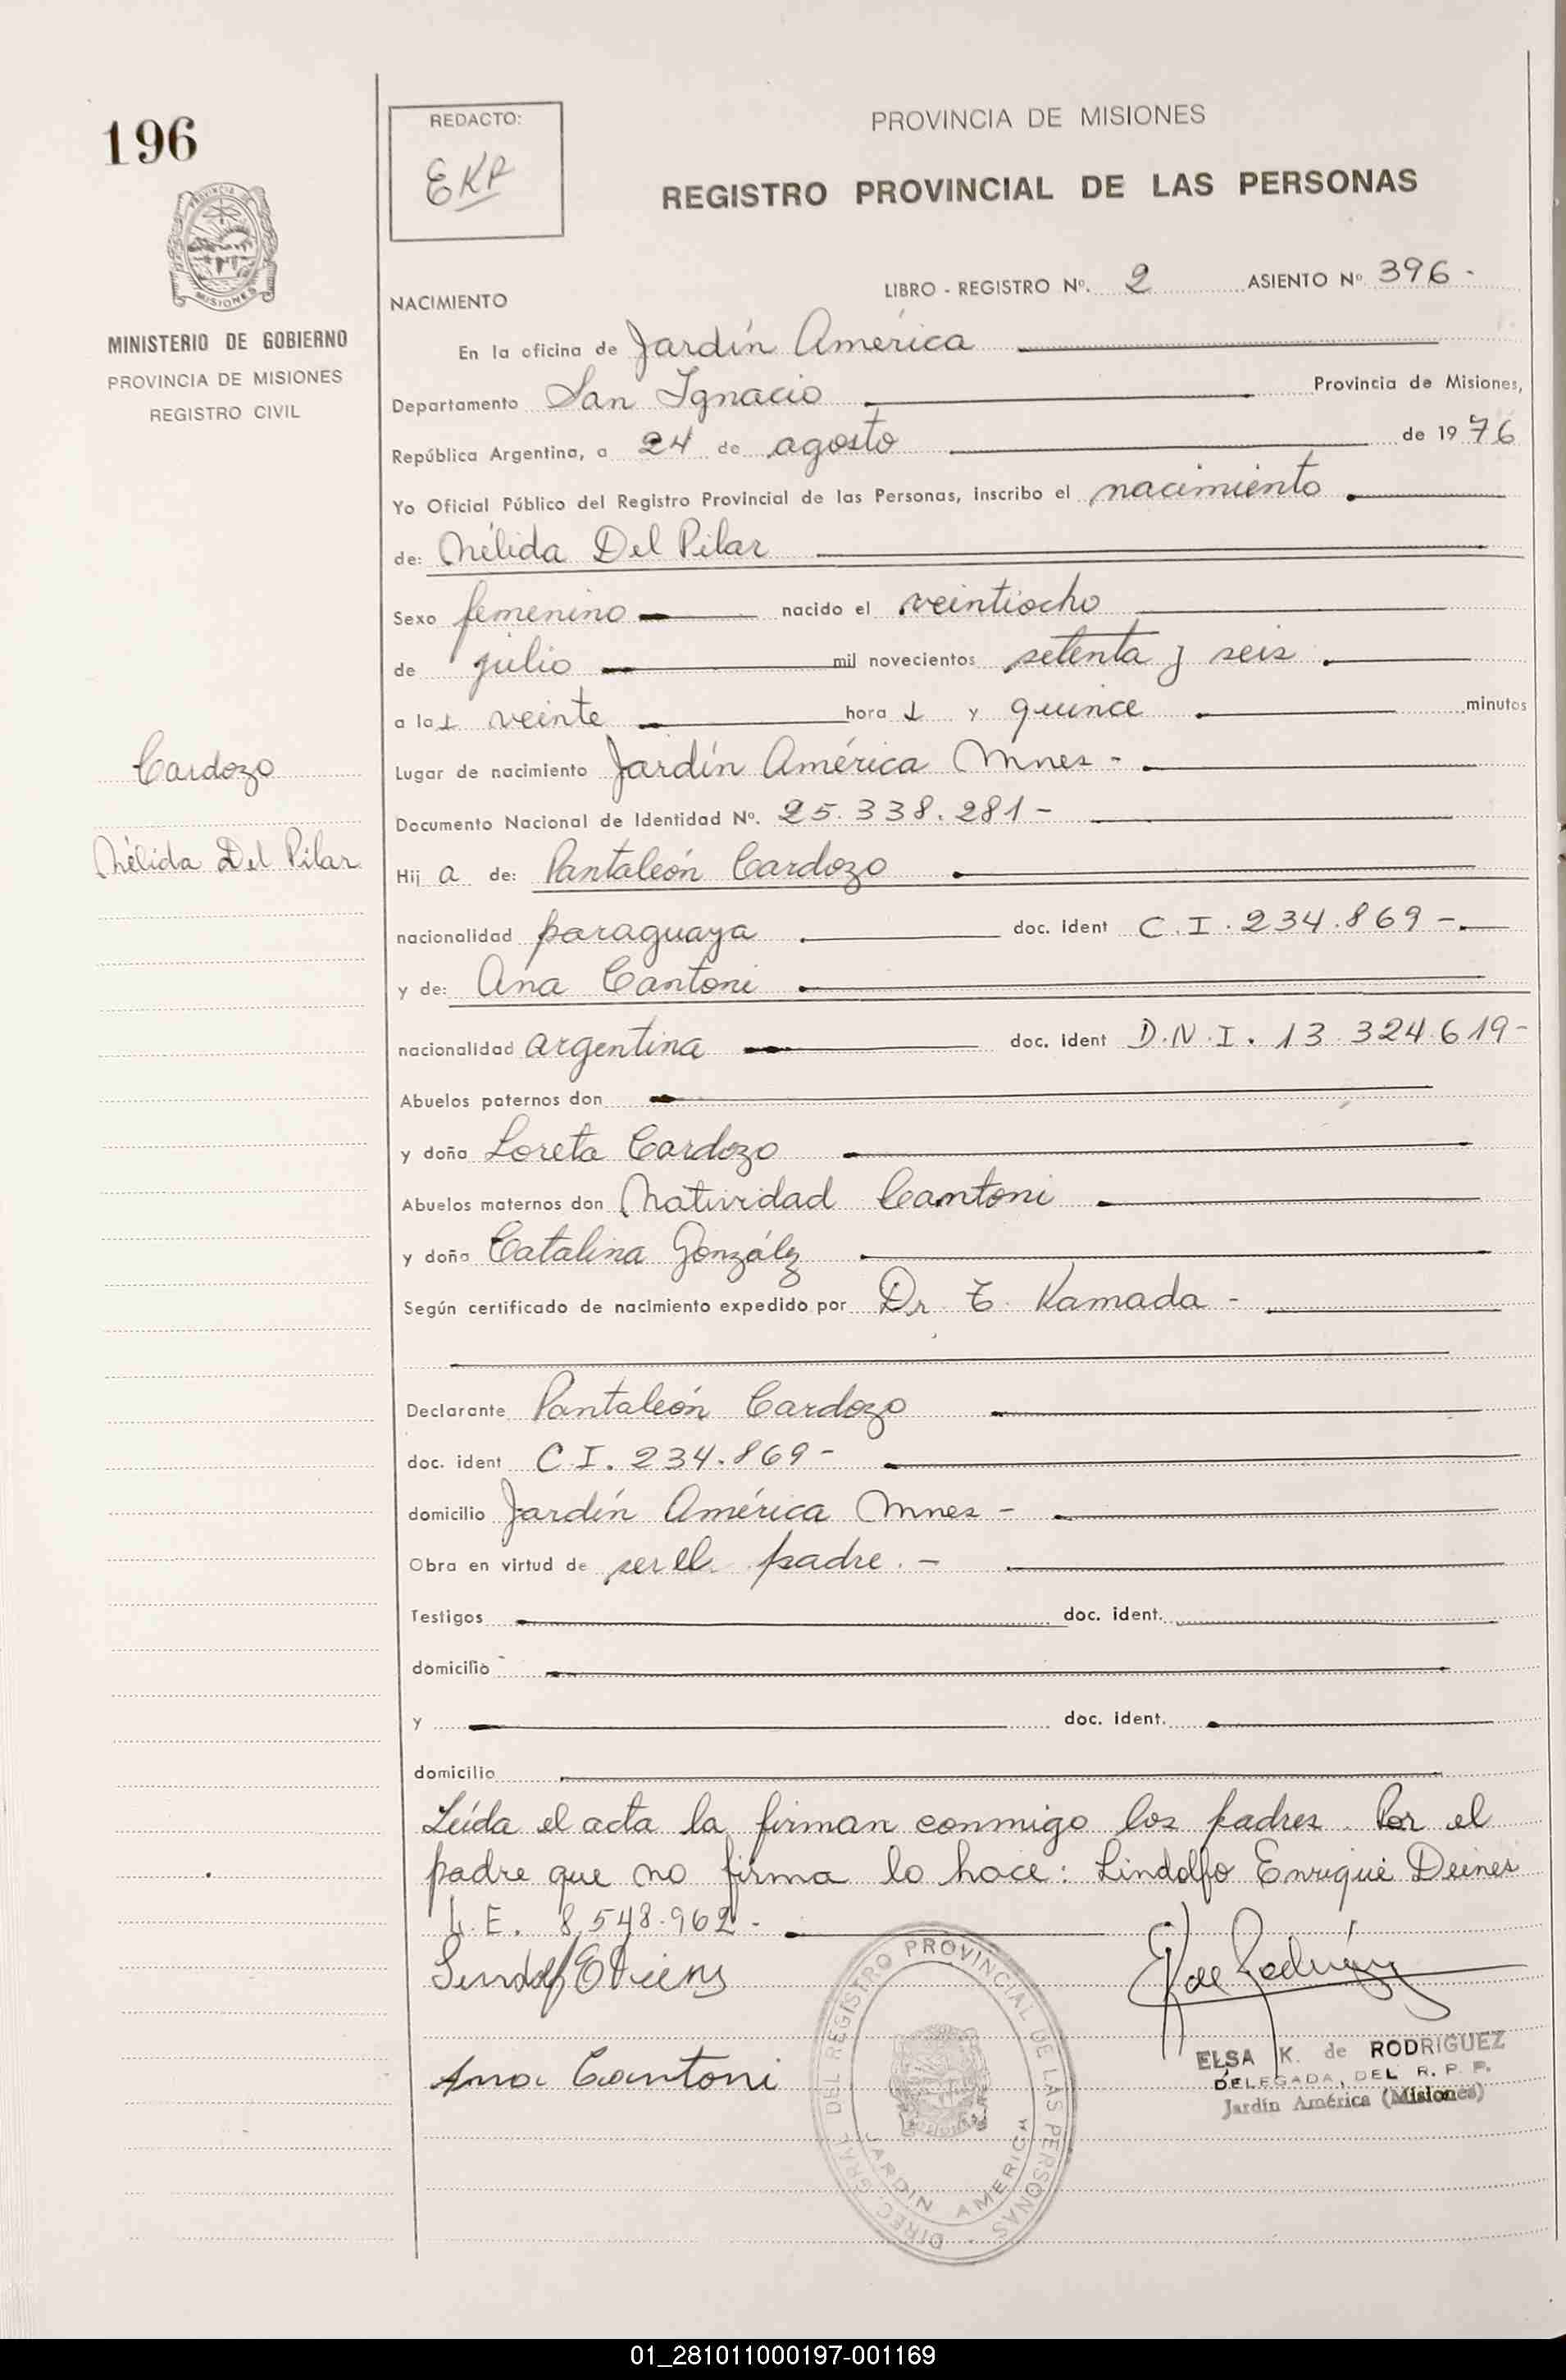 196
REDACTO:
EKR
PROVINCIA DE MISIONES
REGISTRO PROVINCIAL DE LAS PERSONAS
PROVINCIA
MISIONES
MINISTERIO DE GOBIERNO
PROVINCIA DE MISIONES
REGISTRO CIVIL
NACIMIENTO
LIBRO - REGISTRO Nº. 2 ASIENTO Nº 396 -
En la oficina de Jardín América
Departamento San Ignacio Provincia de Misiones,
República Argentina, a 24 de agosto de 1976
Yo Oficial Público del Registro Provincial de las Personas, inscribo el nacimiento
de: Nélida Del Pilar
Sexo femenino nacido el veintiocho
de julio mil novecientos setenta y seis
a las veinte horas y quince minutos
Cardozo
Nélida Del Pilar
Lugar de nacimiento Jardín América Mnes -
Documento Nacional de Identidad Nº. 25.338.281 -
Hija de: Pantaleón Cardozo
nacionalidad paraguaya doc. ident C.I. 234.869 -
y de: Ana Cantoni
nacionalidad argentina doc. ident D.N.I. 13.324.619 -
Abuelos paternos don
y doña Loreta Cardozo
Abuelos maternos don Natividad Cantoni
y doña Catalina González
Según certificado de nacimiento expedido por Dr. T. Kamada -
Declarante Pantaleón Cardozo
doc. ident C.I. 234.869 -
domicilio Jardín América Mnes -
Obra en virtud de ser el padre. -
Testigos doc. ident.
domicilio
y doc. ident.
domicilio
Leída el acta la firman conmigo los padres. Por el
padre que no firma lo hace: Lindolfo Enrique Deines
L.E. 8.548.962 -
Ana Cantoni
DIREC. GRAL. DEL REGISTRO PROVINCIAL DE LAS PERSONAS
JARDIN AMERICA
ELSA K. de RODRIGUEZ
DELEGADA, DEL R. P. P.
Jardín América (Misiones)
01_281011000197-001169